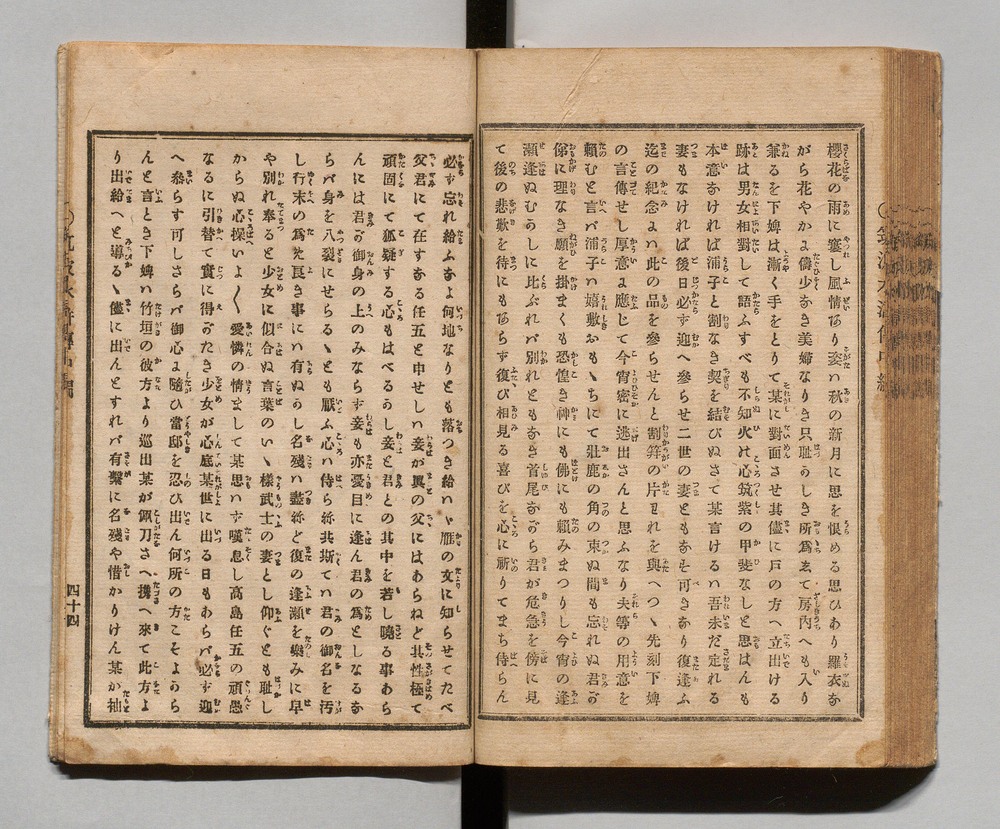 櫻花の雨に窶し風情あり姿ハ秋の新月に思を恨める思ひあり羅衣な
がら花やかよ儔少なき美婦なりき只耻かしき所爲ゑて房内へも入り
兼るを下婢は漸く手をとりて某に對面させ其儘に戸の方へ立出ける
跡は男女相對して語ふすべも不知火の心筑紫の甲斐なしと思はんも
本意なければ浦子と割なき契を結びぬさて某言けるハ吾未だ定れる
妻もなければ後日必ず迎へ參らせ二世の妻ともなす可きあり復逢ふ
迄の紀念よハ此の品を參らせんと割笄の片し是れを與へつゝ先刻下婢
の言傳せし厚意よ應じて今宵密に逃出さんと思ふなり夫等の用意を
頼むと言へバ浦子ハ嬉敷おもゝちにて牡鹿の角の束ぬ間も忘れぬ君の
俤に理なき願を掛まくも恐惶き神にも佛にも頼みまつりし今宵の逢
瀬逢ぬむかしに比ぶれバ別れともなき首尾ながら君が危急を傍に見
て後の悲歎を待にもあらず復び相見る喜びを心に祈りてまち侍らん
必ず忘れ給ふなよ何地なりとも落つき給ハヾ雁の文に知らせてたべ
父君にて在すなる任五と申せしハ妾が眞の父にはあらねど其性極て
頑固にて狐疑する心もはべるかし妾と君との其中を若し曉る事あら
んには君の御身の上のみならず妾も亦憂目に逢ん君の爲としなるな
らバ身を八裂にせらるゝとも厭ふ心ハ侍ら絲共斯てハ君の御名を汚
し行末の爲に良き事にハ有ぬかし名殘ハ盡絲ど復の逢瀬を樂みに早
や別れ奉ると少女に似合ぬ言葉のハヽ樣武士の妻とし仰ぐとも耻し
からぬ心操いよ〱愛憐の情ましして某思ハず嘆息し高島任五の頑愚
なるに引替て實に得がたき少女が心底某世に出る日もあらバ必ず迎
へ參らす可しさらバ御心よ隨ひ當邸を忍び出ん何所の方こそよから
んと言とき下婢ハ竹垣の彼方より巡出某が佩刀さへ携へ來て此方よ
り出給へと導る儘に出んとすれバ有繋に名殘や惜かりけん某か袖
四十四